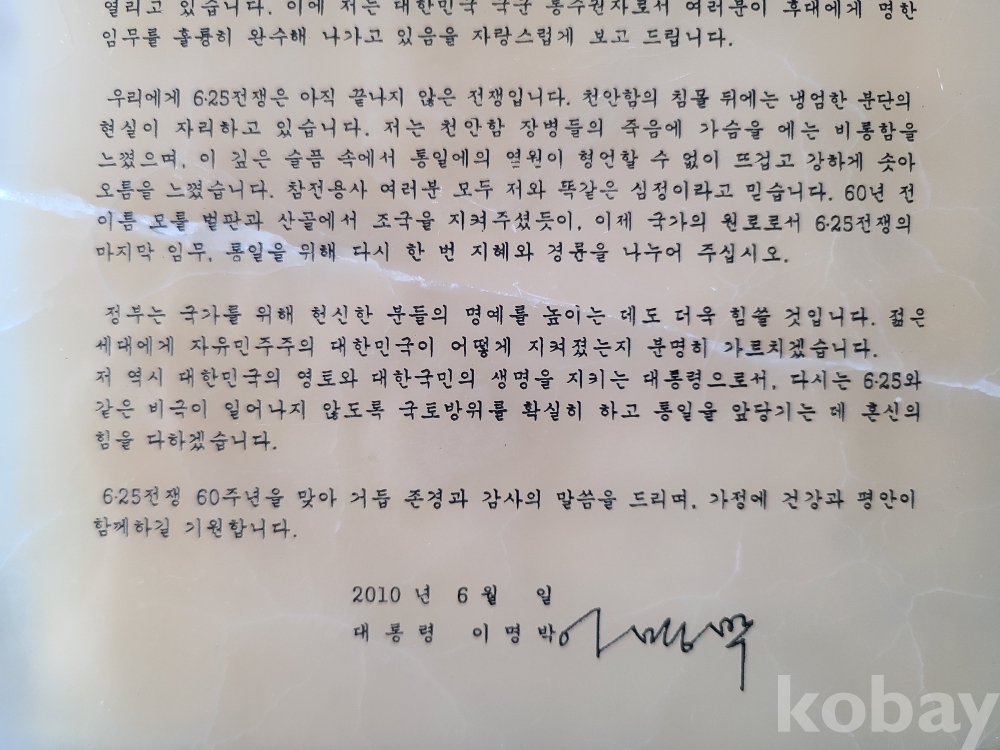 열리고 있습니다. 이에 저는 대한민국 국군 통수권자로서 여러분이 후대에게 명한
임무를 훌륭히 완수해 나가고 있음을 자랑스럽게 보고 드립니다.
우리에게 6·25전쟁은 아직 끝나지 않은 전쟁입니다. 천안함의 침몰 뒤에는 냉엄한 분단의
현실이 자리하고 있습니다. 저는 천안함 장병들의 죽음에 가슴을 에는 비통함을
느꼈으며, 이 깊은 슬픔 속에서 통일에의 열원이 형언할 수 없이 뜨겁고 강하게 솟아
오름을 느꼈습니다. 참전용사 여러분 모두 저와 똑같은 심정이라고 믿습니다. 60년 전
이름 모를 벌판과 산골에서 조국을 지켜주셨듯이, 이제 국가의 원로로서 6·25전쟁의
마지막 임무, 통일을 위해 다시 한 번 지혜와 경륜을 나누어 주십시오.
정부는 국가를 위해 헌신한 분들의 명예를 높이는 데도 더욱 힘쓸 것입니다. 젊은
세대에게 자유민주주의 대한민국이 어떻게 지켜졌는지 분명히 가르치겠습니다.
저 역시 대한민국의 영토와 대한국민의 생명을 지키는 대통령으로서, 다시는 6·25와
같은 비극이 일어나지 않도록 국토방위를 확실히 하고 통일을 앞당기는 데 혼신의
힘을 다하겠습니다.
6·25전쟁 60주년을 맞아 거듭 존경과 감사의 말씀을 드리며, 가정에 건강과 평안이
함께하길 기원합니다.
2010 년 6 월 일
대 통 령 이 명 박 이명박
kobay